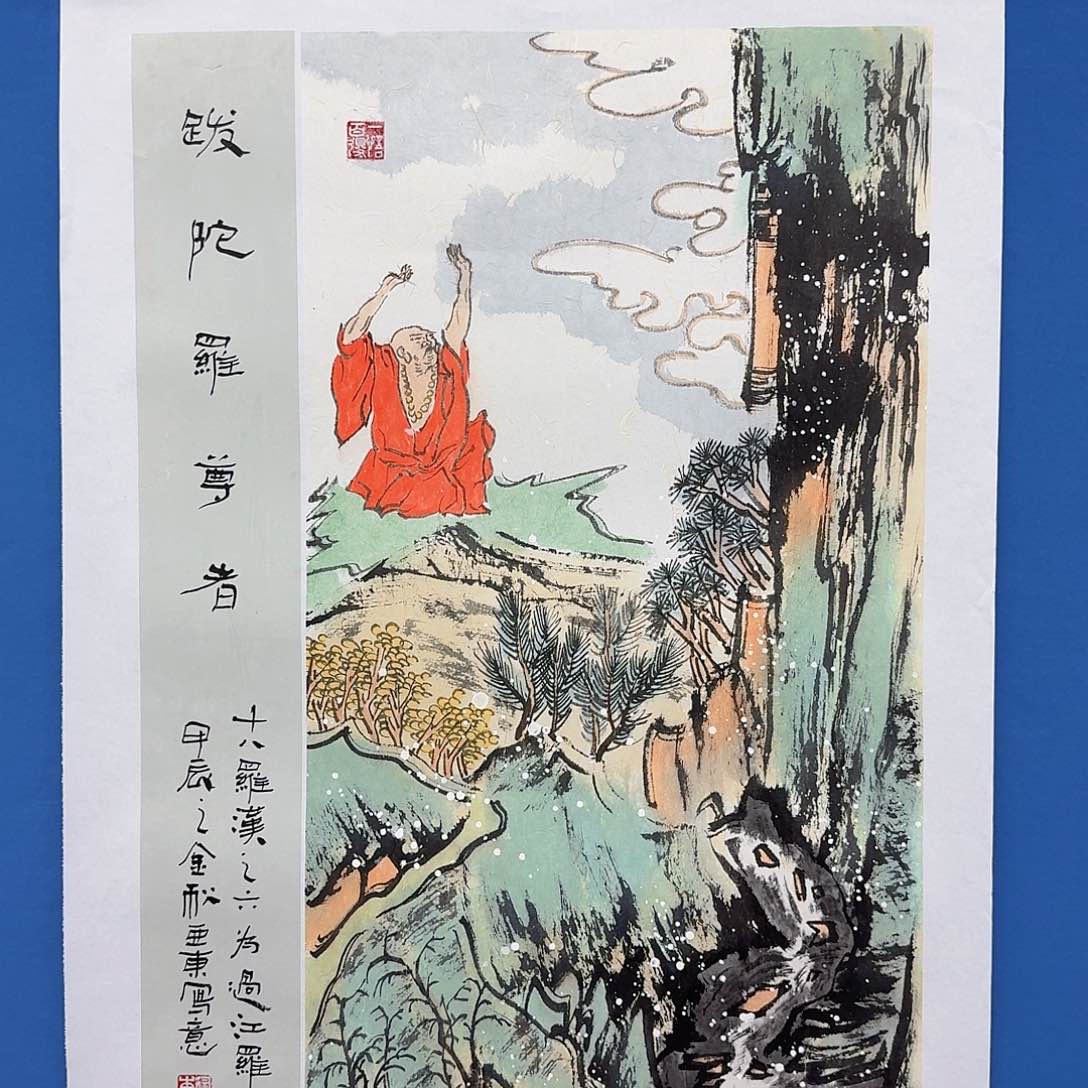 跋陀羅尊者
十八羅漢之六為過江羅
甲辰之金秋亞東寫意